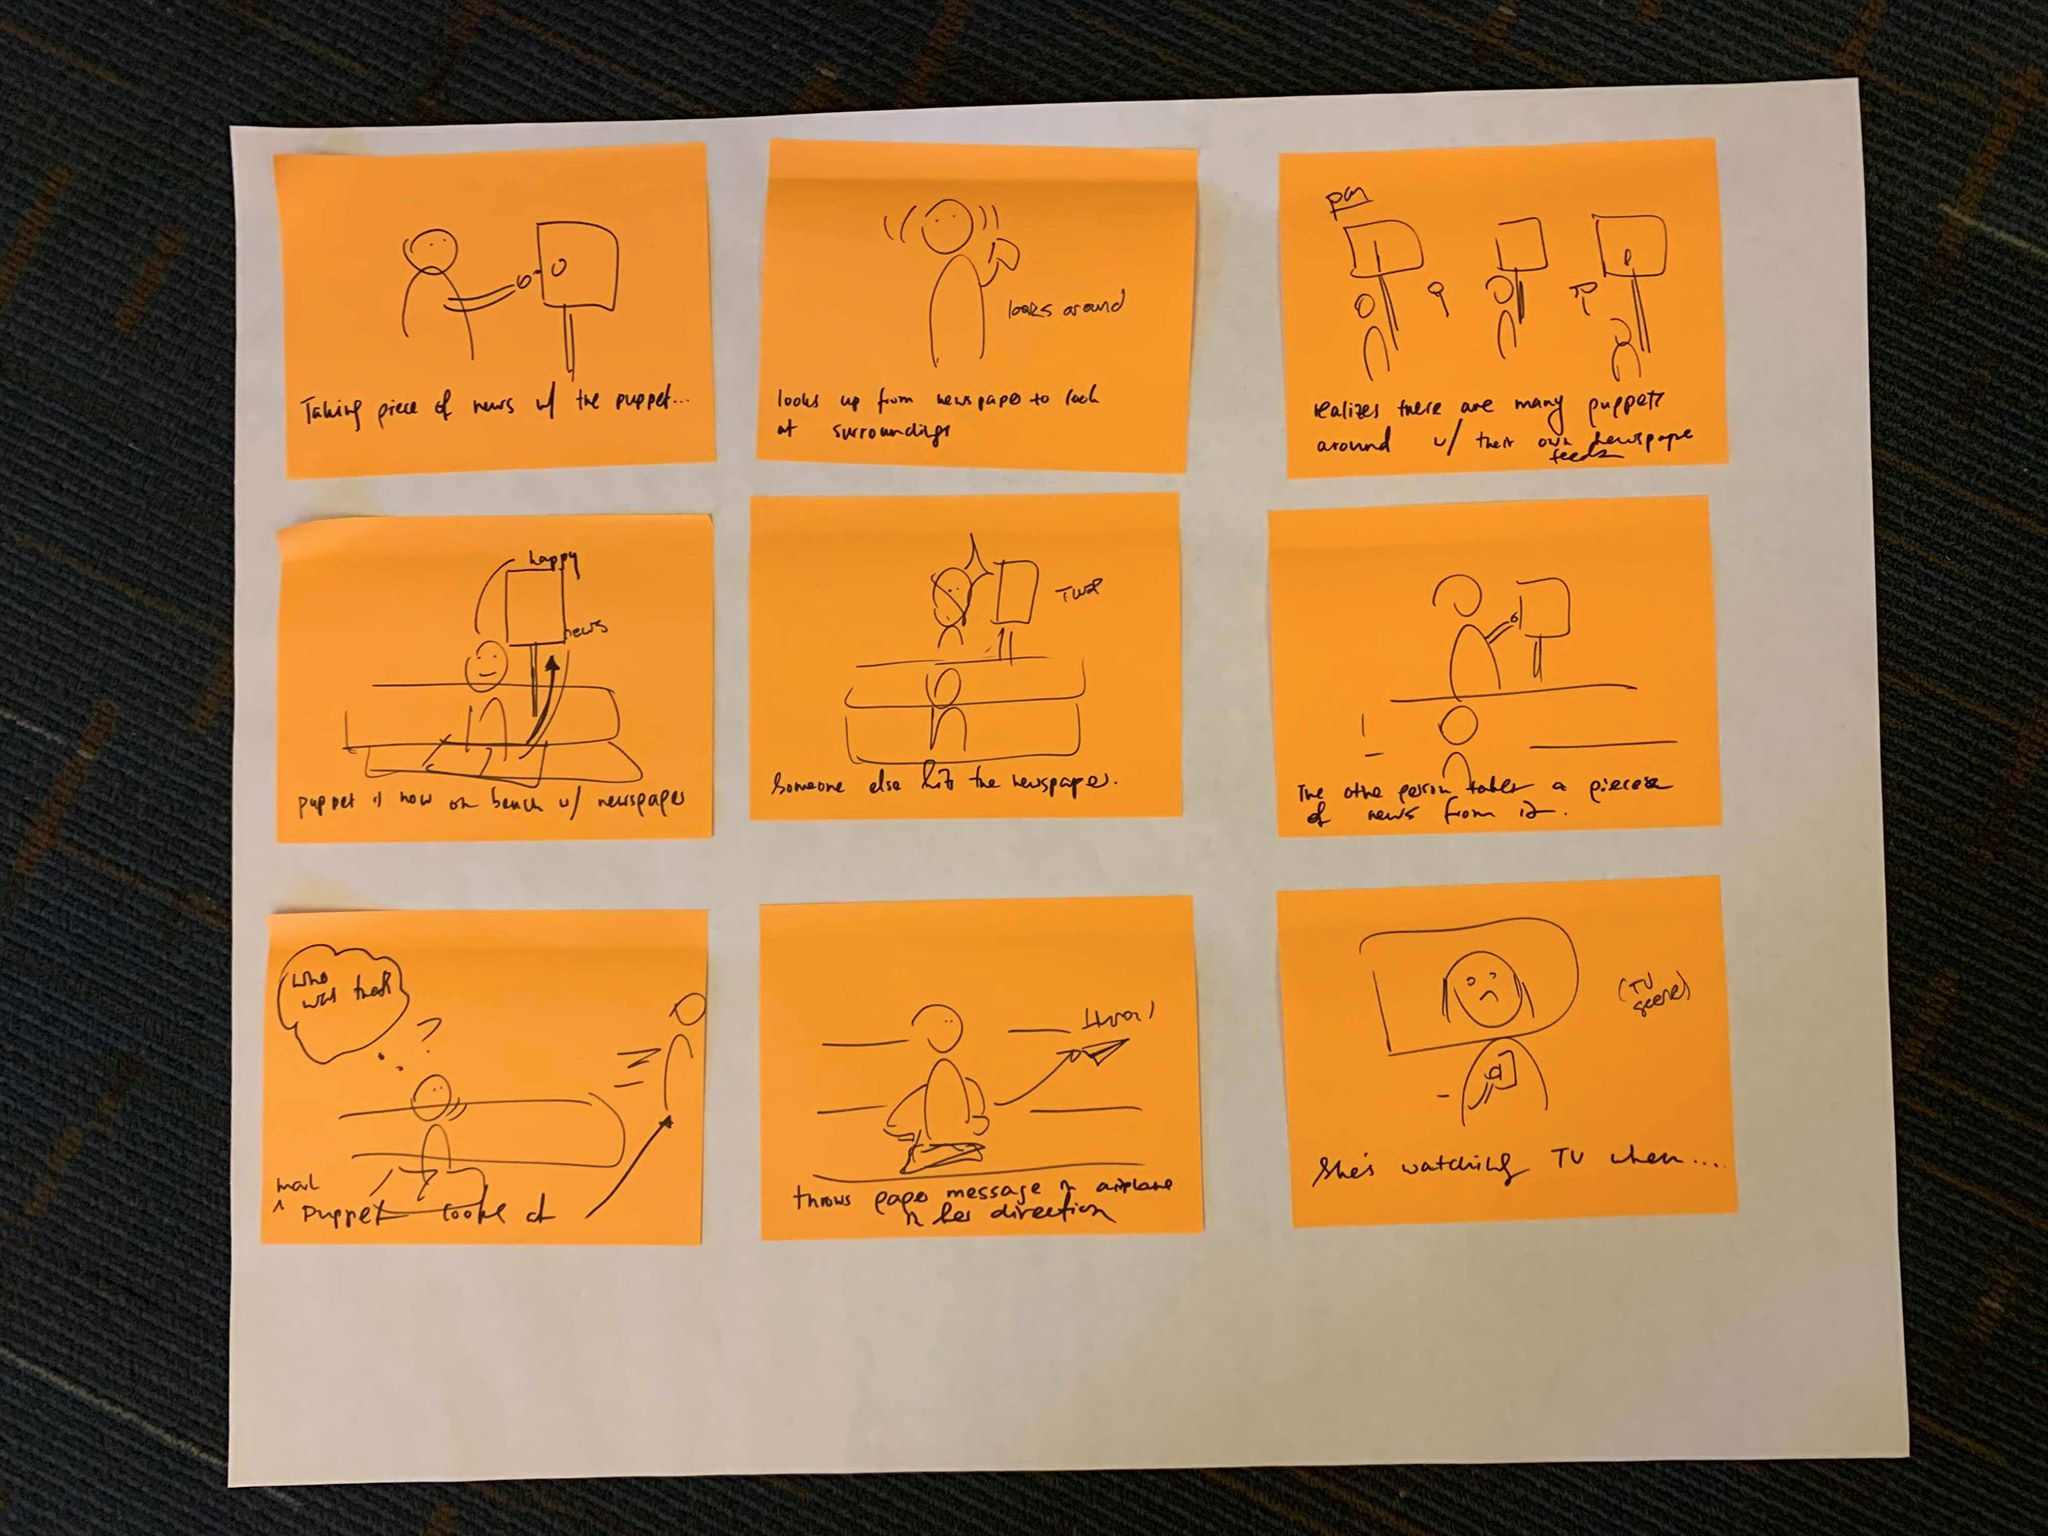 Taking piece of news w/ the puppet...
looks around
looks up from newspaper to look
at surroundings
pan
realizes there are many puppets
around w/ their own newspape
feeds
happy
news
puppet is now on bench w/ newspaper
Someone else hits the newspaper.
The othe person takes a piecese
of news from it.
who
was that
?
male
^ puppet looks at
throws pape message in airplane
in her direction
(TV
scene)
She's watching TV when....